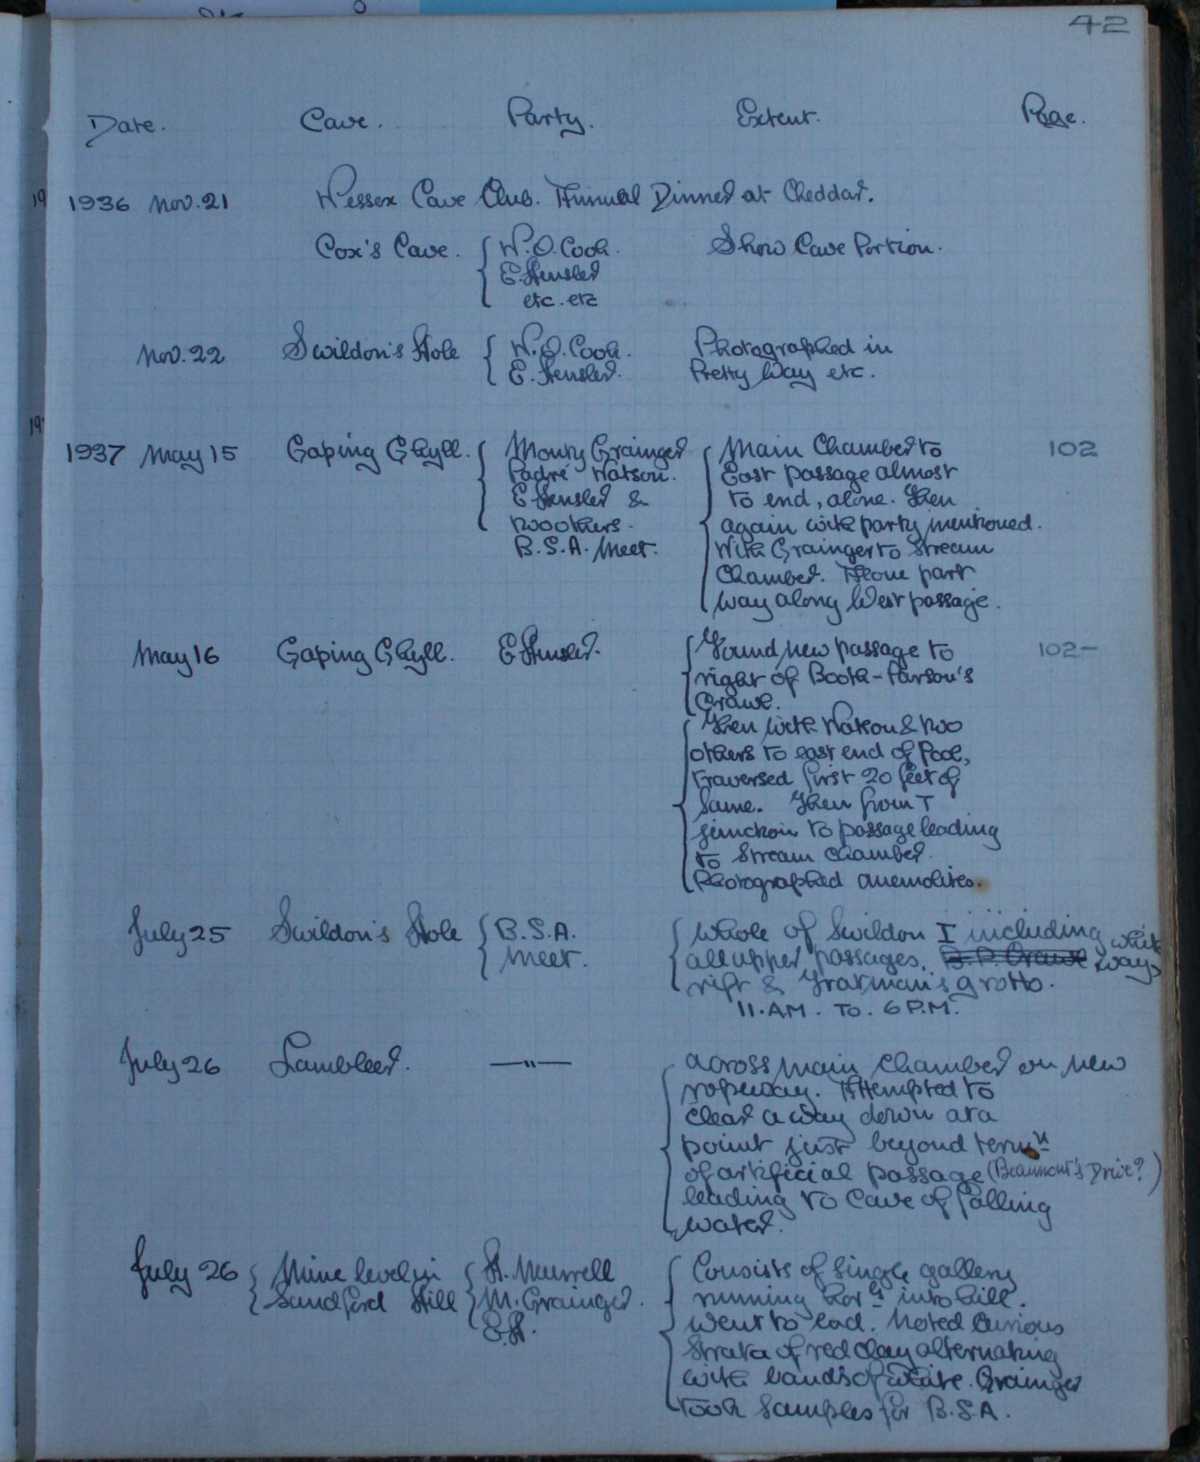 42
Date. Cave. Party. Extent. Page.
1936 Nov. 21 Wessex Cave Club. Annual Dinner at Cheddar.
Cox's Cave. W.O. Cook. Show Cave Portion.
E. Hensler
etc. etc
Nov. 22 Swildon's Hole W.O. Cook. Photographed in
E. Hensler. Pretty Way etc.
1937 May 15 Gaping Ghyll. Moury Grainger Main Chamber to 102
Padré Watson. East passage almost
E Hensler & to end, alone. Then
two others. again with party mentioned.
B.S.A. Meet. With Grainger to Stream
Chamber. Alone part
way along West passage.
May 16 Gaping Ghyll. E Hensler. Found new passage to 102-
right of Booth-Parson's
Crawl.
Then with Watson & two
others to east end of Pool,
traversed first 20 feet of
same. Then from T
junction to passage leading
to stream chamber.
Photographed anemolites.
July 25 Swildon's Hole B.S.A. Whole of Swildon I including
Meet. all upper passages, B.P. Crawl white ways
rift & Tratman's grotto.
11.AM. TO. 6 P.M.
July 26 Lambleer. —"— across main chamber on new
ropeway. Attempted to
clear a way down at a
point just beyond term
of artificial passage (Beaumont's Drive?)
leading to Cave of Falling
Water.
July 26 Mine level in H. Murrell Consists of single gallery
Sandford Hill M. Grainger. running horly into hill.
E.H. Went to end. Noted curious
strata of red clay alternating
with bands of white. Grainger
took samples for B.S.A.